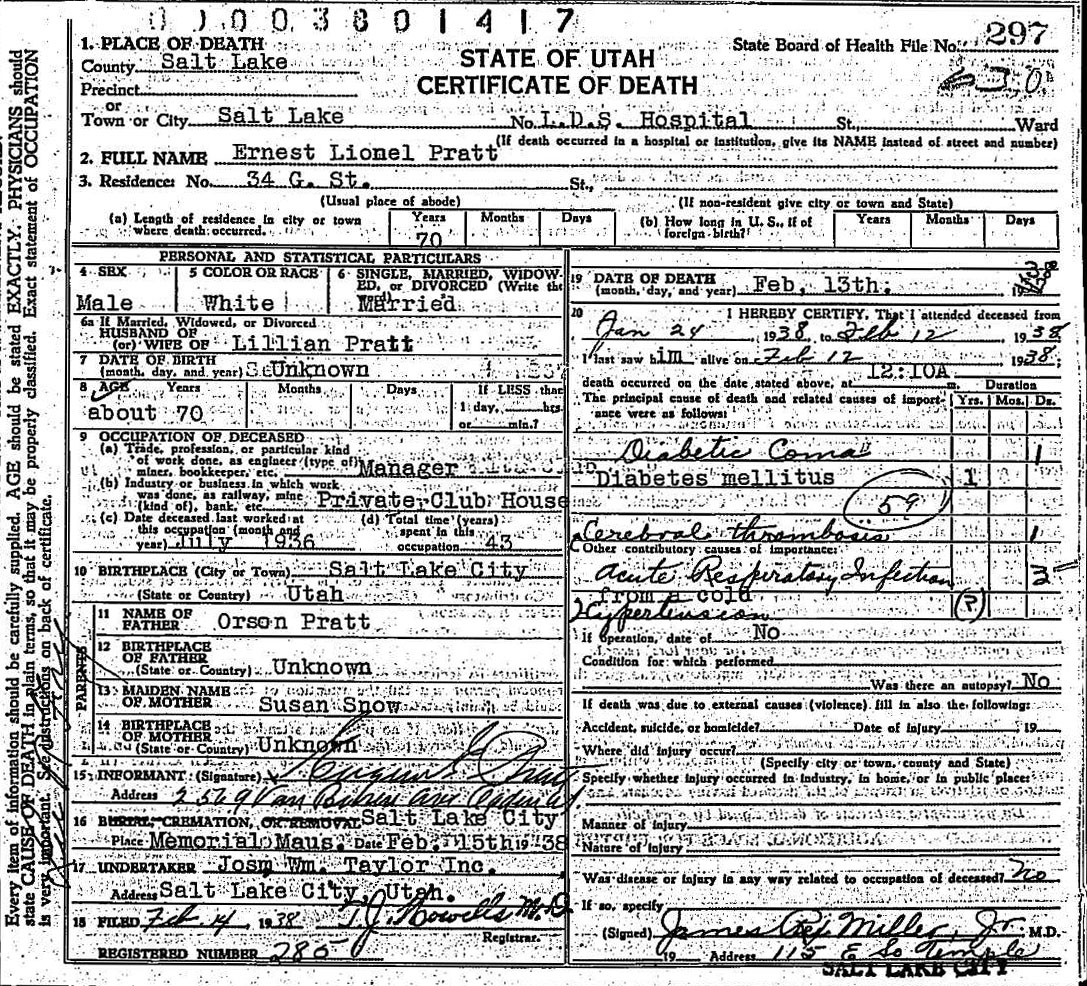 0 0 0 3 8 0 1 4 1 7
State Board of Health File No. 297
STATE OF UTAH
CERTIFICATE OF DEATH
1. PLACE OF DEATH
County Salt Lake
Precinct
or
Town or City Salt Lake No. L.D.S. Hospital St., Ward
(If death occurred in a hospital or institution, give its NAME instead of street and number)
2. FULL NAME Ernest Lionel Pratt
3. Residence: No. 34 G. St. St.,
(Usual place of abode) (If non-resident give city or town and State)
(a) Length of residence in city or town where death occurred. Years 70 Months Days
(b) How long in U. S., if of foreign birth? Years Months Days
PERSONAL AND STATISTICAL PARTICULARS
4 SEX Male
5 COLOR OR RACE White
6 SINGLE, MARRIED, WIDOWED, or DIVORCED (Write the Married
6a If Married, Widowed, or Divorced
HUSBAND OF
(or) WIFE OF Lillian Pratt
7 DATE OF BIRTH
(month, day, and year) Unknown
8 AGE Years Months Days If LESS than
about 70 1 day, hrs.
or min.?
9 OCCUPATION OF DECEASED
(a) Trade, profession, or particular kind
of work done, as engineer (type of)
miner, bookkeeper, etc. Manager
(b) Industry or business in which work
was done, as railway, mine
(kind of), bank, etc. Private Club House
(c) Date deceased last worked at
this occupation (month and
year) July 1936
(d) Total time (years)
spent in this
occupation 43
10 BIRTHPLACE (City or Town) Salt Lake City
(State or Country) Utah
PARENTS
11 NAME OF
FATHER Orson Pratt
12 BIRTHPLACE
OF FATHER
(State or Country) Unknown
13 MAIDEN NAME
OF MOTHER Susan Snow
14 BIRTHPLACE
OF MOTHER
(State or Country) Unknown
15 INFORMANT (Signature)
Address 2569 Van Buren Ave Ogden Ut.
16 BURIAL, CREMATION, OR REMOVAL Salt Lake City
Place Memorial Maus. Date Feb. 15th 19 38
17 UNDERTAKER Josm Wm. Taylor Inc.
Address Salt Lake City, Utah.
18 FILED Feb. 14 1938 T.J. Howells M.D.
Registrar.
REGISTERED NUMBER 285
19 DATE OF DEATH
(month, day, and year) Feb, 13th. 19
20 I HEREBY CERTIFY, That I attended deceased from
Jan 24 1938 to Feb 12 1938
I last saw him alive on Feb 12 1938;
death occurred on the date stated above, at 12:10A m. Duration
The principal cause of death and related causes of importance were as follows: Yrs. Mos. Ds.
Diabetic Coma 1
Diabetes mellitus 1
59
Cerebral thrombosis 1
Other contributory causes of importance:
Acute Respiratory Infection 3
from a cold
Hypertension (?)
If operation, date of No
Condition for which performed
Was there an autopsy? No
If death was due to external causes (violence) fill in also the following:
Accident, suicide, or homicide? Date of injury 19
Where did injury occur?
(Specify city or town, county and State)
Specify whether injury occurred in industry, in home, or in public place:
Manner of injury
Nature of injury
Was disease or injury in any way related to occupation of deceased? No
If so, specify
(Signed) James Miller, Jr. M.D.
19 Address 115 E So Temple
SALT LAKE CITY
Every item of information should be carefully supplied. AGE should be stated EXACTLY. PHYSICIANS should
state CAUSE OF DEATH in plain terms, so that it may be properly classified. Exact statement of OCCUPATION
is very important. See instructions on back of certificate.